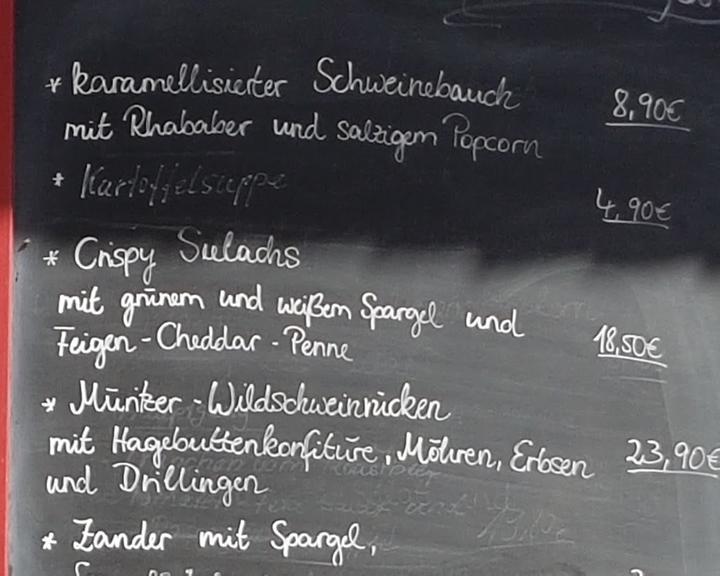 * karamellisierter Schweinebauch 8,90€
mit Rhababer und salzigem Popcorn
* Kartoffelsuppe 4,90€
* Crispy Sulachs
mit grünem und weißem Spargel und
Feigen-Cheddar-Penne 18,50€
* Müritzer-Wildschweinrücken
mit Hagebuttenkonfitüre, Möhren, Erbsen 23,90€
und Drillingen
* Zander mit Spargel,